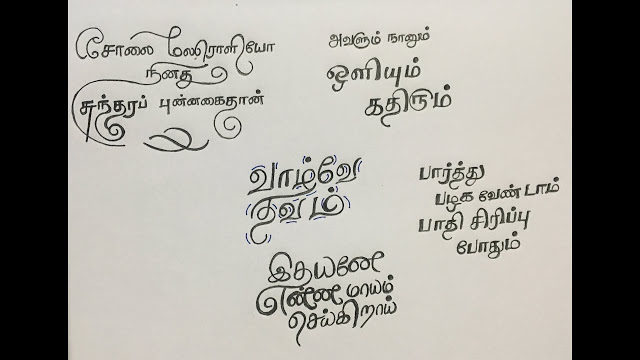 சோலை மலரொளியோ
நினது
சுந்தரப் புன்னகைதான்
அவளும் நானும்
ஒளியும்
கதிரும்
வாழ்வே
தவம்
பார்த்து
பழக வேண்டாம்
பாதி சிரிப்பு
போதும்
இதயனே
என்னே மாயம்
செய்கிறாய்